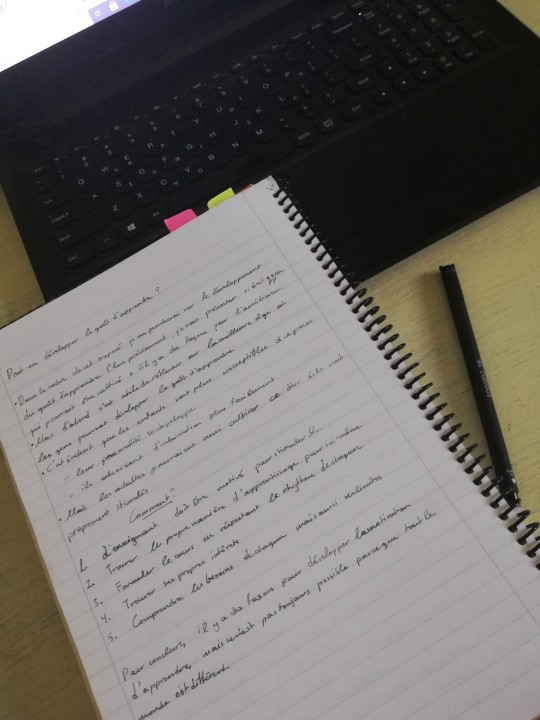 Peut-on développer le goût d'apprendre ?
• Dans le cadre de cet exposé, je me pencherai sur le développement
du goût d'apprendre. Plus précisément, je vais présenter si c'est qqch
qui pourrait être cultivé et s'il y a des façons pour l'améliorer.
• Mais d'abord, c'est utile de réfléchir sur la meilleure âge où
les gens pourront développer le goût d'apprendre.
• C'est évident que les enfants sont plus susceptibles à ce process
- leur personalité se développe
- ils absorbent d'information plus facilement
• Mais les adultes pourraient aussi cultiver ce désir s'ils sont
proprement stimulés
Comment?
1. L'enseignant doit être motivé pour stimuler
2. Trouver la propre manière d'apprentissage pour soi-même
3. Formuler le cours en répectant le rhythme de chacun
4. Trouver ses propres intérêts
5. Comprendre les besoins de chacun mais aussi ses limites
Pour conclure, il y a des façons pour développer la motivation
d'apprendre, mais ce n'est pas toujours possible parce que tout le
monde est différent.
Q W E R T Y U I O P
A S D F G H J K L
Z X C V B N M